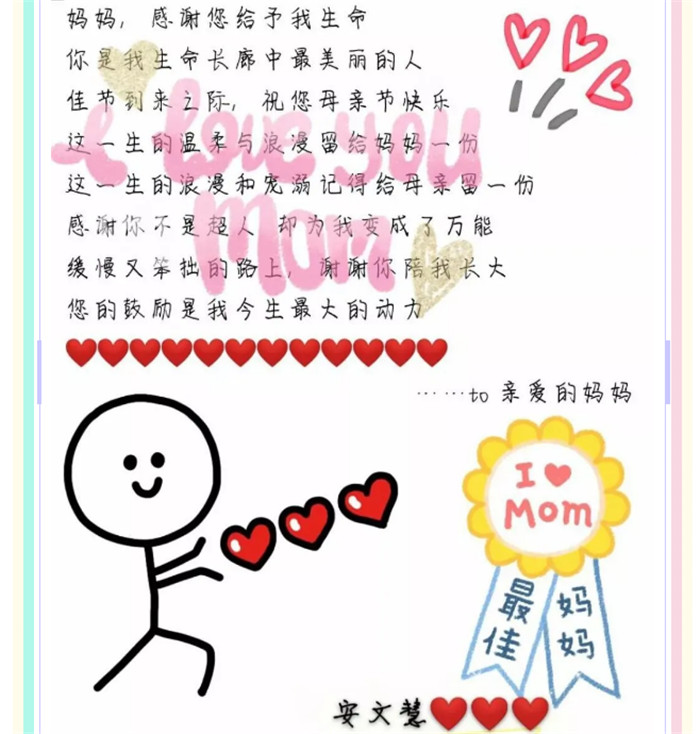 妈妈，感谢您给予我生命
你是我生命长廊中最美丽的人
佳节到来之际，祝您母亲节快乐
这一生的温柔与浪漫留给妈妈一份
这一生的浪漫和宠溺记得给母亲留一份
感谢你不是超人 却为我变成了万能
缓慢又笨拙的路上，谢谢你陪我长大
您的鼓励是我今生最大的动力
I love you
Mom
……to 亲爱的妈妈
I ❤
Mom
最佳
妈妈
安文慧